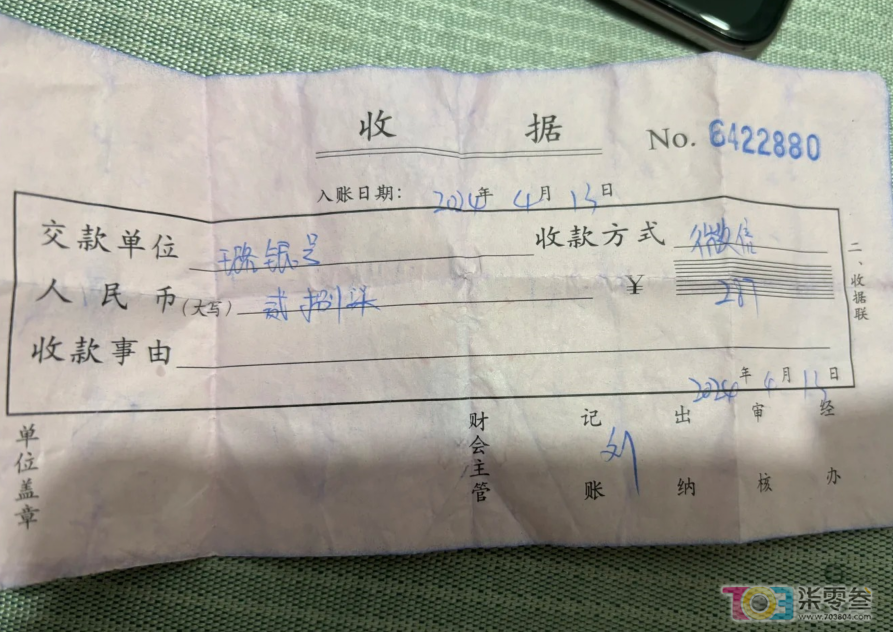 收 据 No. 6422880
入账日期: 2024年 4月 13日
交款单位 珠银号 收款方式 微信
人民币(大写) 贰捌柒 ¥ 287
收款事由
2024年 4月 13日
二、收据联
单位盖章 财会主管 记账 刘 出纳 审核 经办
703 柒零叁
www.703804.com